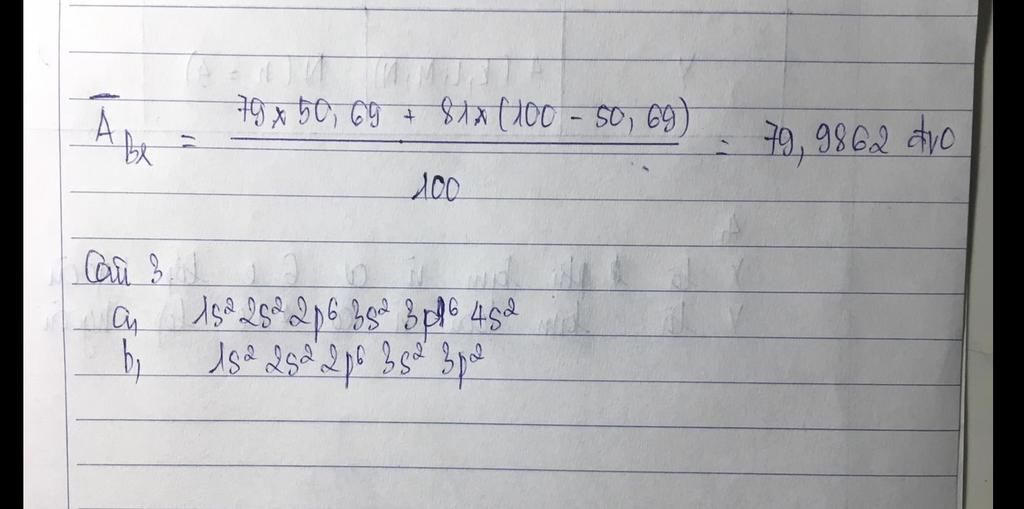 A̅_Br = (79 x 50,69 + 81 x (100 - 50,69)) / 100 = 79,9862 đvC
Câu 3
a, 1s² 2s² 2p⁶ 3s² 3p⁶ 4s²
b, 1s² 2s² 2p⁶ 3s² 3p²